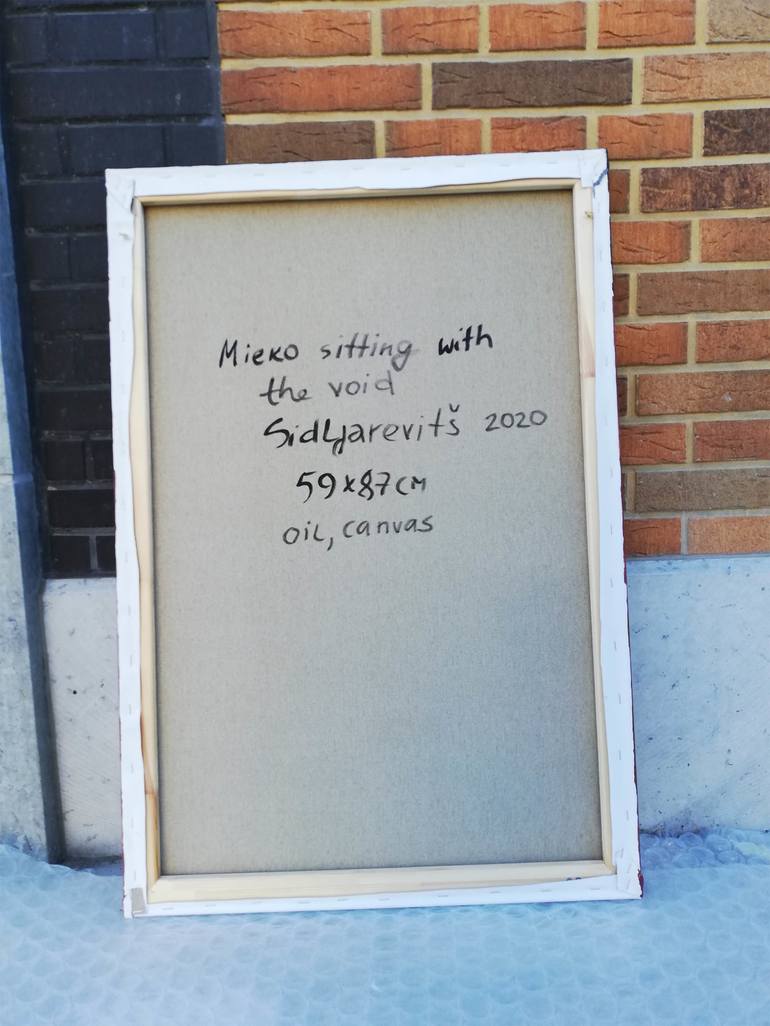 Mieko sitting with
the void
Sidljarevitš 2020
59x87cm
oil, canvas